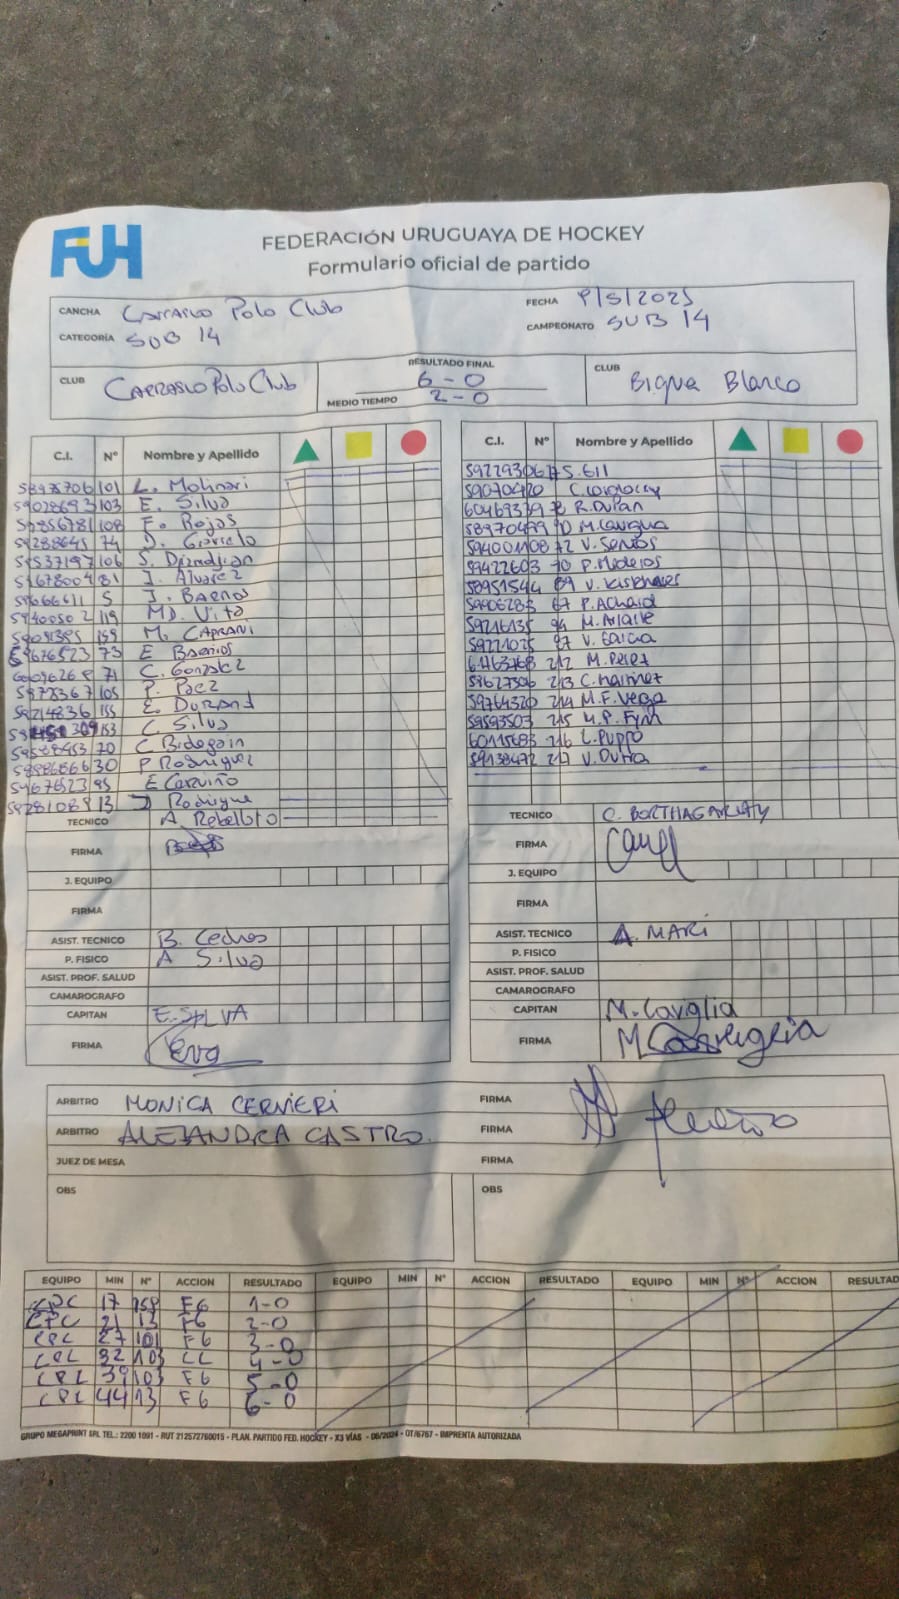 FUH
FEDERACIÓN URUGUAYA DE HOCKEY
Formulario oficial de partido
CANCHA Carrasco Polo Club FECHA 9/5/2025
CATEGORÍA SUB 14 CAMPEONATO SUB 14
CLUB Carrasco Polo Club
RESULTADO FINAL 6-0
MEDIO TIEMPO 2-0
CLUB Bigua Blanco
C.I. Nº Nombre y Apellido
58975706 101 L. Molinari
59028693 103 E. Silva
108 F. Rojas
74 D.
106 S.
81 J. Alvarez
5 J. Barnos
119 MD. Vita
159 M. Caprani
73 E Barrios
71 C. Gonzalez
105 P. Paez
59214836 155 E. Durand
153 C. Silva
70 C Bidegain
30 P Rodriguez
95 E Carviño
13 J Rodrigue
TECNICO A Rebelloto
FIRMA
J. EQUIPO
FIRMA
ASIST. TECNICO B. Cedres
P. FISICO A Silva
ASIST. PROF. SALUD
CAMAROGRAFO
CAPITAN E. SILVA
FIRMA Eva
C.I. Nº Nombre y Apellido
S. Gil
59070420 C.
60469339 R. Duran
58970499 90 M. Caviglia
72 V.
59422603 70 P. Mederos
58951544 89 V.
59406283 67 P. Achard
59216135 94 M.
59221025 97 V. Garcia
212 M. Perez
213 C. Martinez
59764320 214 M.F. Vega
59593503 215 M.P. Fynn
60115693 216 L. Puppo
59138472 217 V. Dutra
TECNICO C. BORTHAGARAY
FIRMA
J. EQUIPO
FIRMA
ASIST. TECNICO A. MARI
P. FISICO
ASIST. PROF. SALUD
CAMAROGRAFO
CAPITAN M. Caviglia
FIRMA M
ARBITRO MONICA CERVIERI FIRMA
ARBITRO ALEJANDRA CASTRO FIRMA
JUEZ DE MESA FIRMA
OBS OBS
EQUIPO MIN Nº ACCION RESULTADO EQUIPO MIN Nº ACCION RESULTADO EQUIPO MIN Nº ACCION RESULTAD
CPC 17 159 FG 1-0
CPC 21 13 FG 2-0
CPC 27 101 FG 3-0
CPC 32 103 CC 4-0
CPC 39 103 FG 5-0
CPC 44 13 FG 6-0
GRUPO MEGAPRINT SRL TEL.: 2200 1091 - RUT 212572760015 - PLAN. PARTIDO FED. HOCKEY - X3 VÍAS - 06/2024 - OT/6767 - IMPRENTA AUTORIZADA